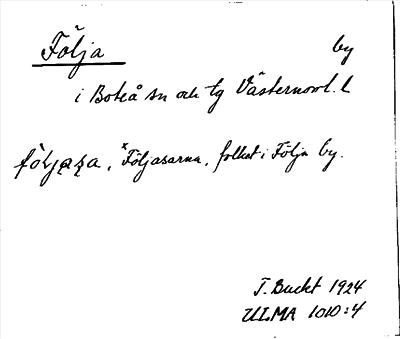 Följa by
i Boteå sn och tg Västernorrl. l
*Följasarna, folket i Följa by.
T. Bucht 1924
ULMA 1010:4